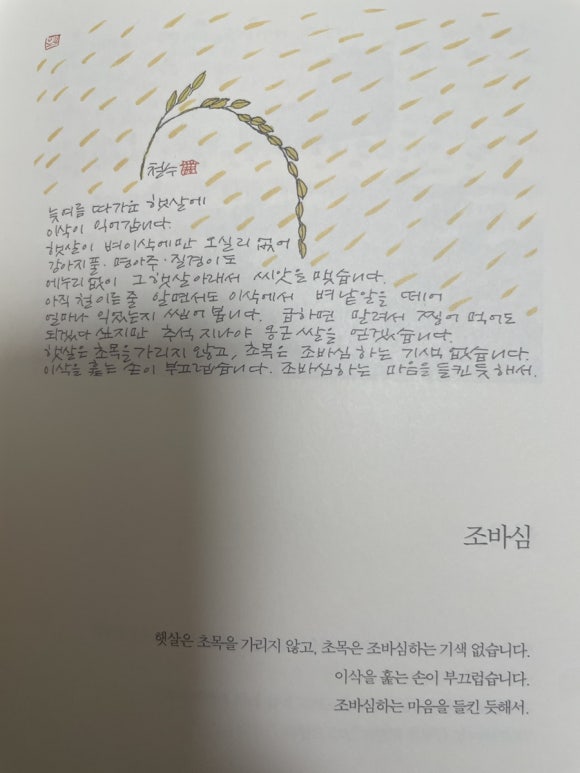 철수
늦여름 따가운 햇살에
이삭이 익어갑니다.
햇살이 벼이삭에만 오실리 없어
강아지풀·명아주·질경이도
에누리 없이 그 햇살아래서 씨앗을 맺습니다.
아직 철 이른 줄 알면서도 이삭에서 벼낱알을 떼어
얼마나 익었는지 씹어 봅니다. 급하면 말려서 쪄어 먹어도
되겠다 싶지만 추석 지나야 둥근 쌀을 얻겠습니다.
햇살은 초목을 가리지 않고, 초목은 조바심하는 기색 없습니다.
이삭을 훑는 손이 부끄럽습니다. 조바심하는 마음을 들킨 듯해서.
조바심
햇살은 초목을 가리지 않고, 초목은 조바심하는 기색 없습니다.
이삭을 훑는 손이 부끄럽습니다.
조바심하는 마음을 들킨 듯해서.